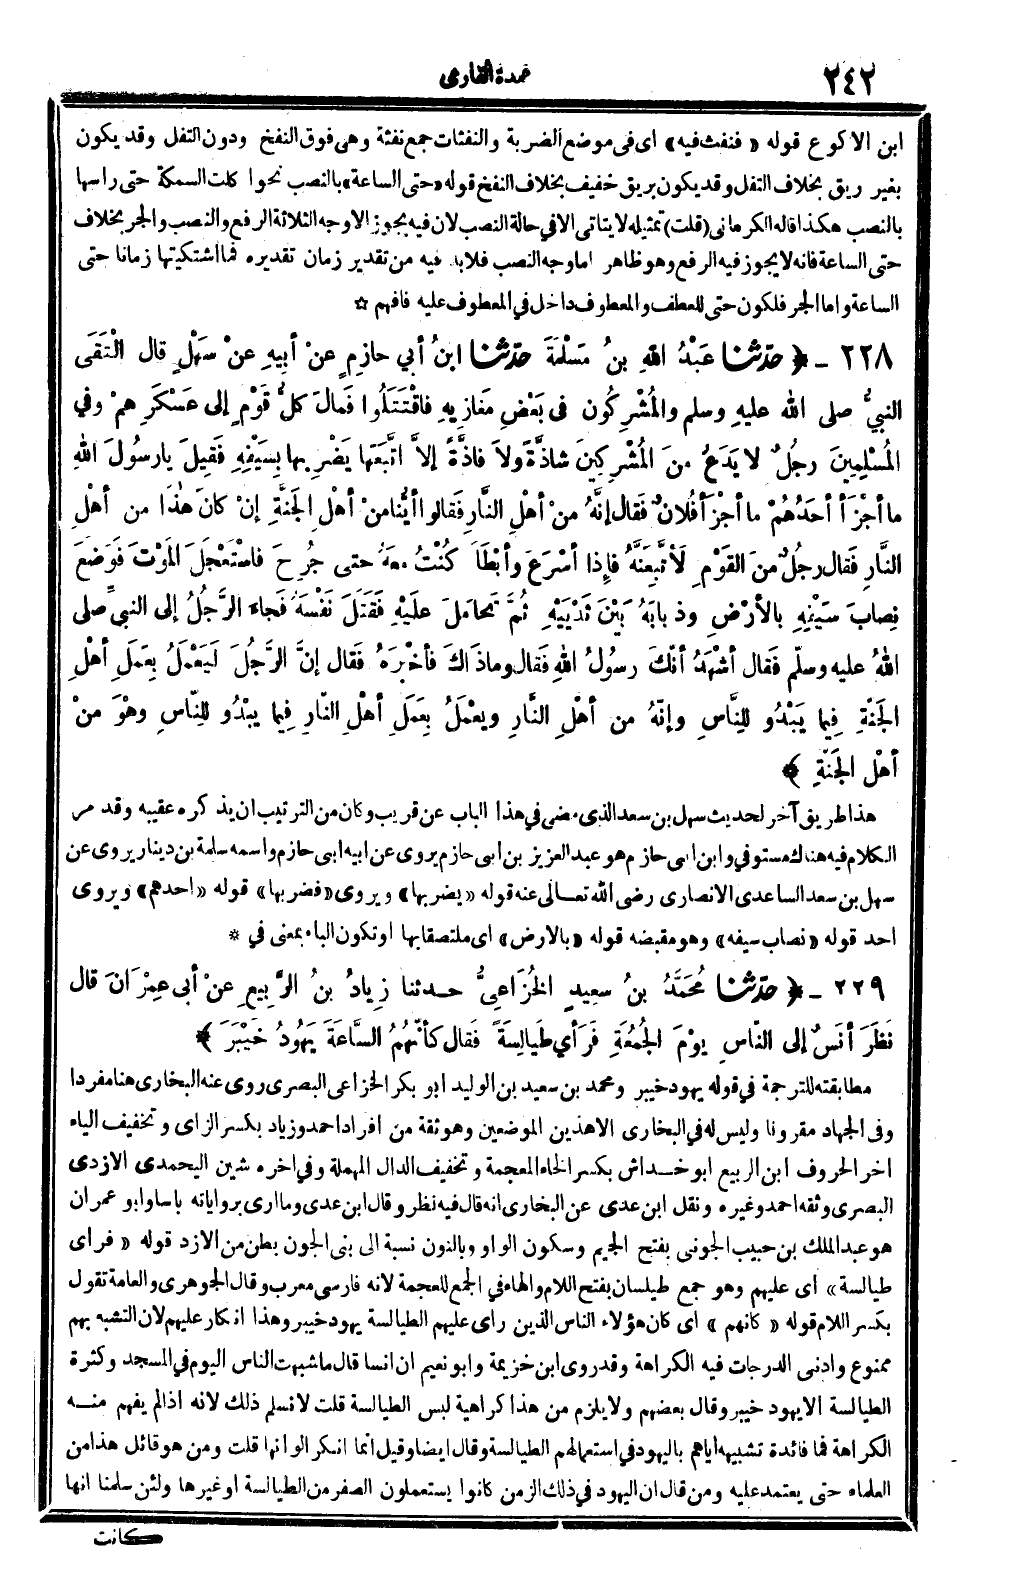 ٢٤٢
عمدة القارى
ابن الاكوع قوله « فنفث فيه » اى فى موضع الضربة والنفثات جمع نفثة وهى فوق النفخ ودون التفل وقد يكون
بغير ريق بخلاف التفل وقد يكون بريق خفيف بخلاف النفخ قوله «حتى الساعة» بالنصب نحوا كلت السمكة حتى راسها
بالنصب هكذا قاله الكرمانى (قلت) تمثيله لا يتاتى الا فى حالة النصب لان فيه يجوز الاوجه الثلاثة الرفع والنصب والجر بخلاف
حتى الساعة فانه لا يجوز فيه الرفع وهو ظاهر اما وجه النصب فلابد فيه من تقدير زمان تقديره فما اشتكيتها زمانا حتى
الساعة واما الجر فلكون حتى للعطف والمعطوف داخل فى المعطوف عليه فافهم ☆
٢٢٨ - ﴿ حدّثنا عَبْدُ اللهِ بنُ مَسْلَمَةَ حدّثنا ابنُ أبي حازِمٍ عنْ أبيهِ عنْ سَهْلٍ قال الْتَقَى
النبيُّ صلى الله عليهِ وسلم والمُشْرِكُون فى بَعْضِ مَغازِيهِ فاقْتَتَلُوا فَمالَ كلُّ قَوْمٍ إلى عَسْكَرِهِمْ وفي
المُسْلِمِينَ رجلٌ لا يَدَعُ منَ المُشْرِكِينَ شاذَّةً ولاَ فاذَّةً إلاَّ اتَّبَعَها يَضْرِبها بِسَيْفِهِ فَقِيلَ يارسُولَ اللهِ
ما أجْزَأ أحَدُهُمْ ما أجْزَأ فُلانٌ فَقال إنَّهُ منْ أهْلِ النَّارِ فَقالوا أيُّنا منْ أهْلِ الجَنَّةِ إنْ كانَ هٰذا من أهْلِ
النَّارِ فَقال رجلٌ منَ القَوْمِ لأتَّبِعَنَّهُ فإذا أسْرَعَ وأبْطَأَ كُنْتُ معهُ حتى جُرِحَ فاسْتَعْجَلَ المَوْتَ فَوَضَعَ
نِصابَ سَيْفِهِ بالأرْضِ وذبابَهُ بَيْنَ ثَدْيَيْهِ ثُمَّ تَحامَلَ علَيْهِ فَقَتَلَ نَفْسَهُ فَجاءَ الرَّجُلُ إلى النبيِّ صلى
اللهُ عليه وسلّم فَقال أشْهَدُ أنَّكَ رسولُ اللهِ فَقال وماذَاكَ فأخْبَرَهُ فَقال إنَّ الرَّجُلَ لَيَعْمَلُ بِعَمَلِ أهْلِ
الجَنَّةِ فِيما يَبْدُو لِلنَّاسِ وإنَّهُ من أهْلِ النَّارِ ويعْمَلُ بِعَمَلِ أهْلِ النّارِ فِيما يبْدُو لِلنّاسِ وهْوَ منْ
أهْلِ الجَنَّةِ ﴾
هذا طريق آخر لحديث سهل بن سعد الذى مضى فى هذا الباب عن قريب وكان من الترتيب ان يذكره عقيبه وقد مر
الكلام فيه هناك مستوفى وابن ابى حازم هو عبد العزيز بن ابى حازم يروى عن ابيه ابى حازم واسمه سلمة بن دينار يروى عن
سهل بن سعد الساعدى الانصارى رضى الله تعالى عنه قوله « يضربها » ويروى «فضربها» قوله «احدهم» ويروى
احد قوله «نصاب سيفه» وهو مقبضه قوله «بالارض» اى ملتصقا بها او تكون الباء بمعنى فى *
٢٢٩ - ﴿ حدّثنا مُحَمَّدُ بنُ سعِيدٍ الخُزَاعِيُّ حدثنا زِيادُ بنُ الرَّبِيعِ عنْ أبى عِمْرَانَ قال
نَظَرَ أنَسٌ إلى النّاسِ يوْمَ الجُمُعَةِ فَرَأي طَيالِسَةً فَقال كأنَّهُمُ السَّاعَةَ يَهُودُ خَيْبَرَ ﴾
مطابقته للترجمة فى قوله يهود خيبر ومحمد بن سعيد بن الوليد ابو بكر الخزاعى البصرى روى عنه البخارى هنا مفردا
وفى الجهاد مقرونا وليس له فى البخارى الا هذين الموضعين وهو ثقة من افراد احمد وزياد بكسر الزاى وتخفيف الياء
اخر الحروف ابن الربيع ابو خداش بكسر الخاء المعجمة وتخفيف الدال المهملة وفى اخره شين اليحمدى الازدى
البصرى وثقه احمد وغيره ونقل ابن عدى عن البخارى انه قال فيه نظر وقال ابن عدى وما ارى برواياته باسا وابو عمران
هو عبد الملك بن حبيب الجونى بفتح الجيم وسكون الواو وبالنون نسبة الى بنى الجون بطن من الازد قوله « فراى
طيالسة » اى عليهم وهو جمع طيلسان بفتح اللام والهاء فى الجمع للعجمة لانه فارسى معرب وقال الجوهرى والعامة تقول
بكسر اللام قوله « كانهم » اى كان هؤلاء الناس الذين راى عليهم الطيالسة يهود خيبر وهذا انكار عليهم لان التشبه بهم
ممنوع وادنى الدرجات فيه الكراهة وقد روى ابن خزيمة وابو نعيم ان انسا قال ما شبهت الناس اليوم فى المسجد وكثرة
الطيالسة الا يهود خيبر وقال بعضهم ولا يلزم من هذا كراهية لبس الطيالسة قلت لا نسلم ذلك لانه اذا لم يفهم منه
الكراهة فما فائدة تشبيهه اياهم باليهود فى استعمالهم الطيالسة وقال ايضا وقيل انما انكر الوانها قلت ومن هو قائل هذا من
العلماء حتى يعتمد عليه ومن قال ان اليهود فى ذلك الزمن كانوا يستعملون الصفر من الطيالسة او غيرها ولئن سلمنا انها
كانت